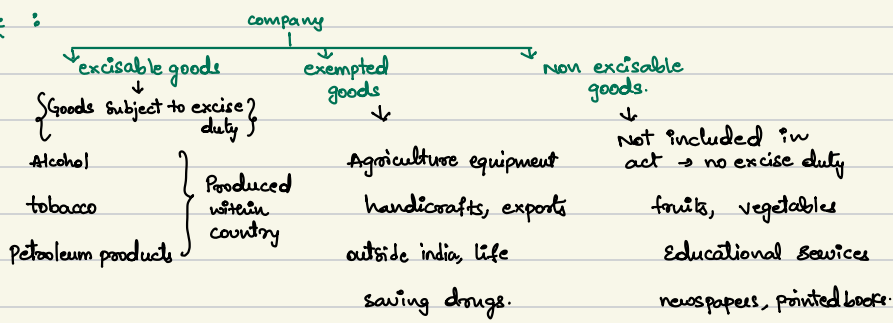 :
company
excisable goods
{Goods subject to excise duty}
Alcohol
tobacco
Petroleum products
Produced within country
exempted goods
Agriculture equipment
handicrafts, exports
outside india, life
saving drugs.
Non excisable goods.
Not included in
act → no excise duty
fruits, vegetables
Educational Services
newspapers, printed books.